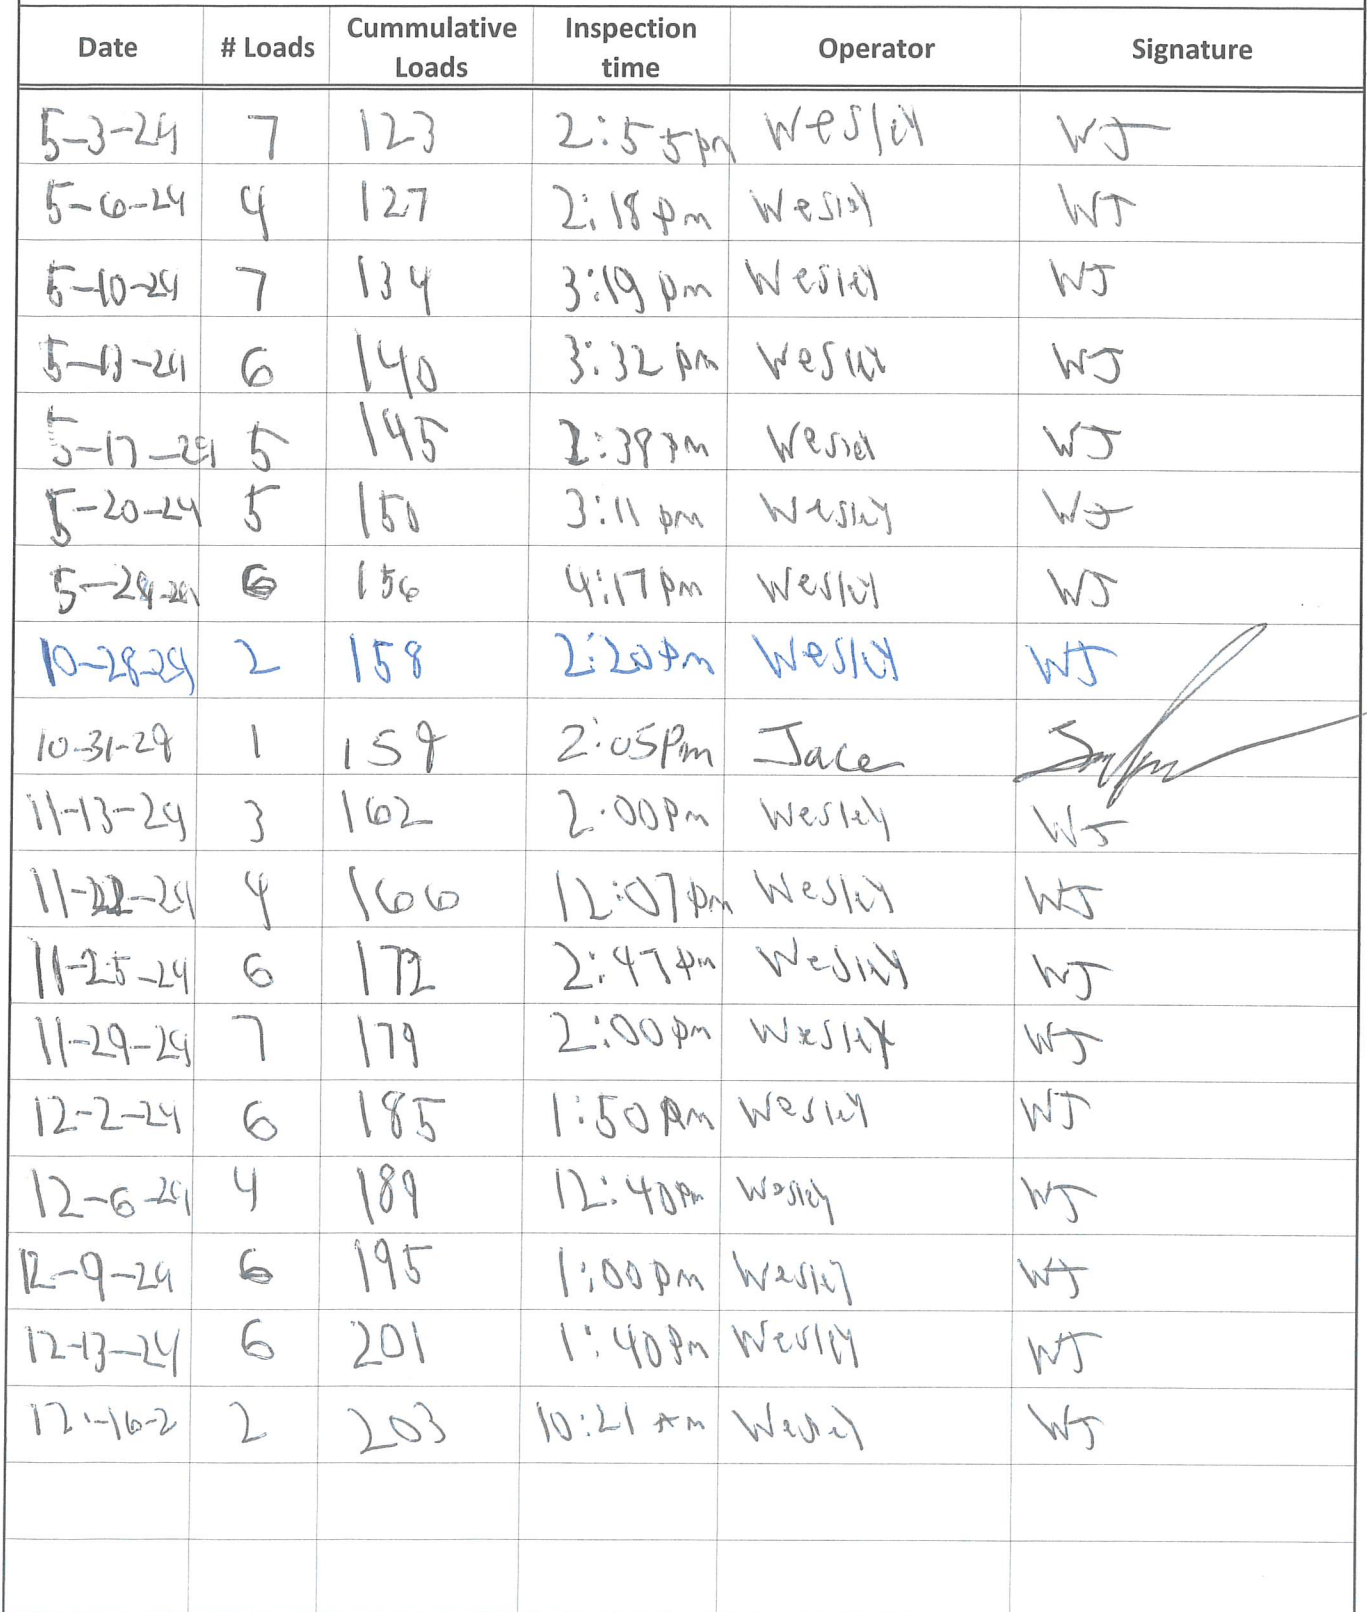 Date # Loads Cummulative Loads Inspection time Operator Signature
5-3-24 7 123 2:55pm Wesley WJ
5-6-24 4 127 2:18pm Wesley WJ
5-10-24 7 134 3:19pm Wesley WJ
5-13-24 6 140 3:32pm Wesley WJ
5-17-24 5 145 2:39pm Wesley WJ
5-20-24 5 150 3:11pm Wesley WJ
5-24-24 6 156 4:17pm Wesley WJ
10-28-24 2 158 2:20pm Wesley WJ
10-31-24 1 159 2:05Pm Jace
11-13-24 3 162 2:00Pm Wesley WJ
11-22-24 4 166 12:07pm Wesley WJ
11-25-24 6 172 2:47pm Wesley WJ
11-29-24 7 179 2:00pm Wesley WJ
12-2-24 6 185 1:50pm Wesley WJ
12-6-24 4 189 12:40pm Wesley WJ
12-9-24 6 195 1:00pm Wesley WJ
12-13-24 6 201 1:40pm Wesley WJ
12-16-2 2 203 10:21am Wesley WJ